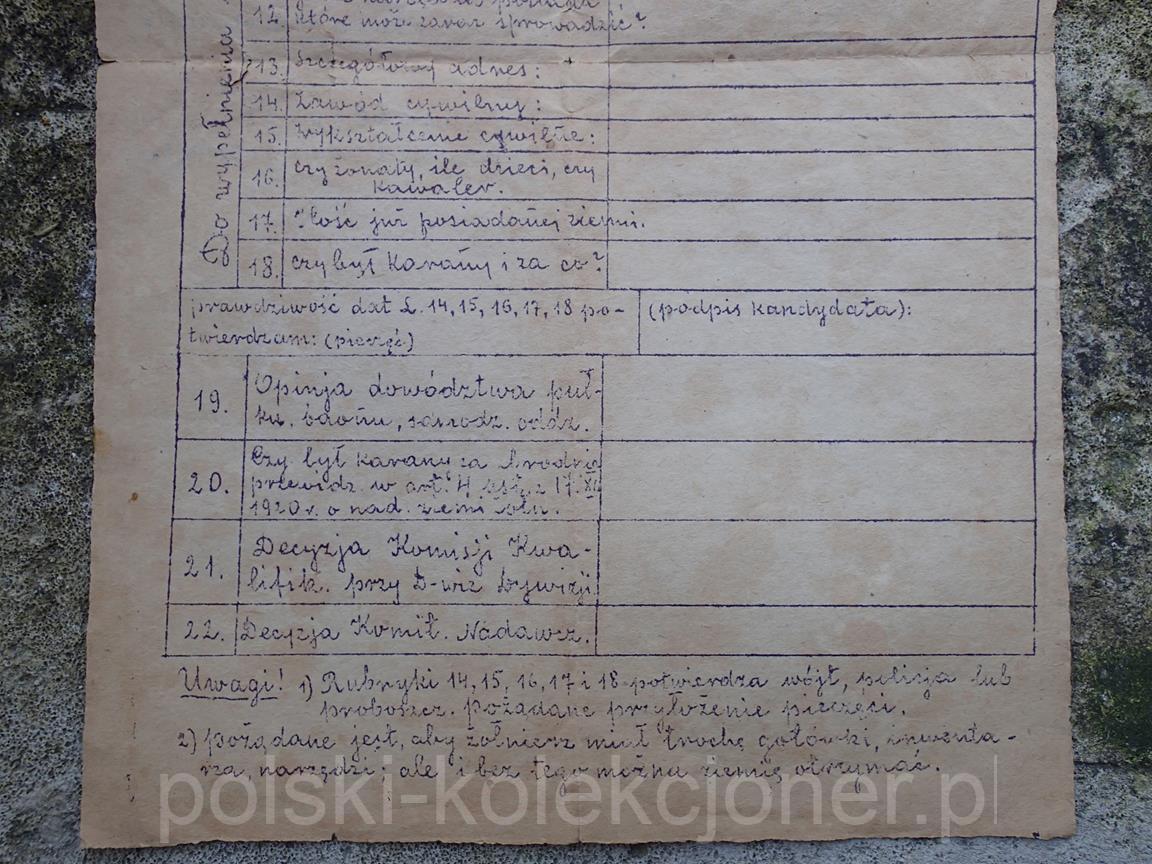 Do wypełnienia
12. które może zaraz sprowadzić?
13. Szczegółowy adres:
14. Zawód cywilny:
15. Wykształcenie cywilne:
16. czy żonaty, ile dzieci, czy
kawaler.
17. Ilość już posiadanej ziemi.
18. czy był karany i za co?
prawdziwość dat 14, 15, 16, 17, 18 po-
twierdzam: (pieczęć)
(podpis kandydata):
19. Opinja dowództwa puł-
ku, baonu, samodz. oddz.
20. Czy był karany za zbrodnie
przewidz. w art. 4 ust. z 17.XII
1920 r. o nad. ziemi żołn.
21. Decyzja Komisji Kwa-
lifik. przy D-wie Dywizji
22. Decyzja Komit. Nadawcz.
Uwagi! 1) Rubryki 14, 15, 16, 17 i 18 potwierdza wójt, policja lub
proboszcz. Pożądane przyłożenie pieczęci.
2) pożądane jest, aby żołnierz miał trochę gotówki, inwenta-
rza, narzędzi; ale i bez tego można ziemię otrzymać.
polski-kolekcjoner.pl